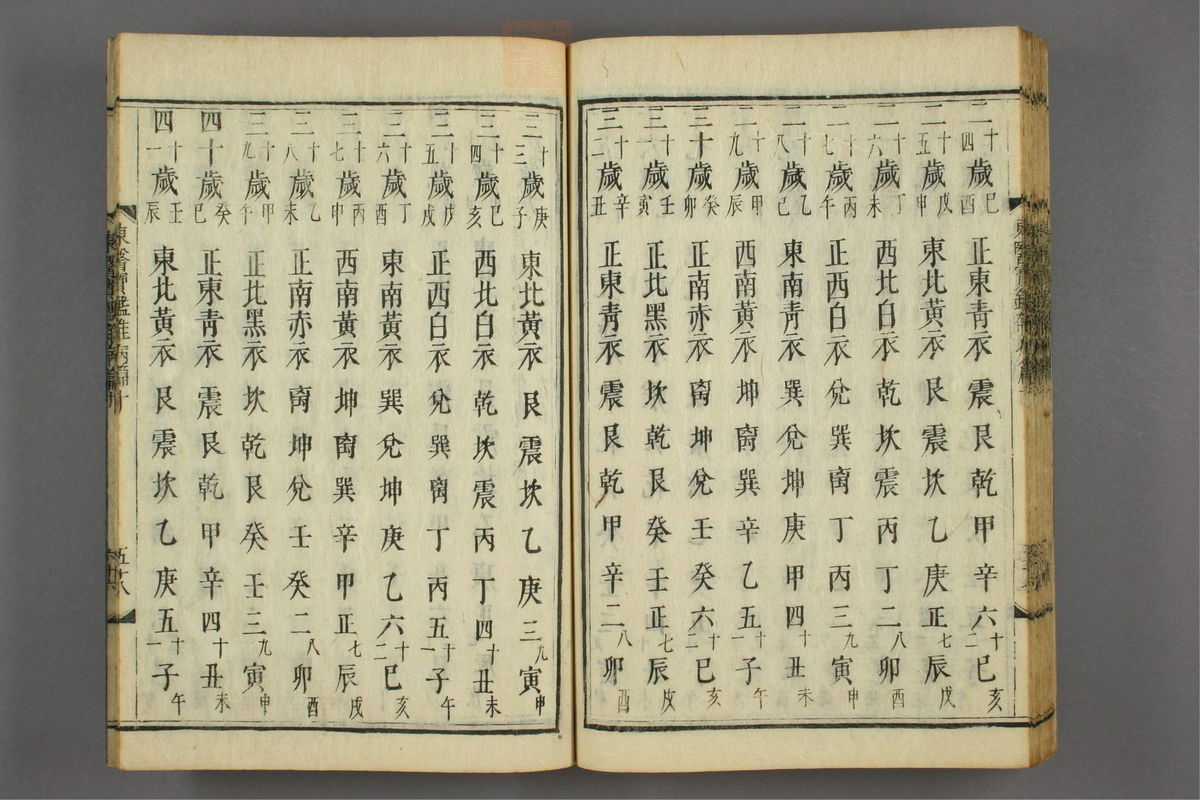 二十四歲己酉 正東青衣 震艮乾甲辛六十二巳亥
二十五歲戊申 東北黃衣 艮震坎乙庚正七辰戌
二十六歲丁未 西北白衣 乾坎震丙丁二八卯酉
二十七歲丙午 正西白衣 兌巽离丁丙三九寅申
二十八歲乙巳 東南青衣 巽兌坤庚甲四十丑未
二十九歲甲辰 西南黃衣 坤离巽辛乙五十一子午
三十歲癸卯 正南赤衣 离坤兌壬癸六十二巳亥
三十一歲壬寅 正北黑衣 坎乾艮癸壬正七辰戌
三十二歲辛丑 正東青衣 震艮乾甲辛二八卯酉
三十三歲庚子 東北黃衣 艮震坎乙庚三九寅申
三十四歲己亥 西北白衣 乾坎震丙丁四十丑未
三十五歲戊戌 正西白衣 兌巽离丁丙五十一子午
三十六歲丁酉 東南黃衣 巽兌坤庚乙六十二巳亥
三十七歲丙申 西南黃衣 坤离巽辛甲正七辰戌
三十八歲乙未 正南赤衣 离坤兌壬癸二八卯酉
三十九歲甲午 正北黑衣 坎乾艮癸壬三九寅申
四十歲癸巳 正東青衣 震艮乾甲辛四十丑未
四十一歲壬辰 東北黃衣 艮震坎乙庚五十一子午
東醫寶鑑雜病篇十 五十八